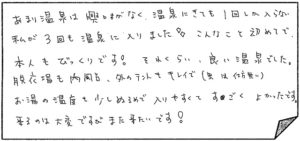 あまり温泉は興味がなく、温泉にきても1回しか入らない
私が3回も温泉に入りました!! こんなこと初めてで、
本人もびっくりです! それくらい、良い温泉でした。
脱衣場も内風呂、外のテントもキレイで(虫は仕方ない)
お湯の温度も少しぬるめで入りやすくてすごくよかったです
来るのは大変ですがまた来たいです!